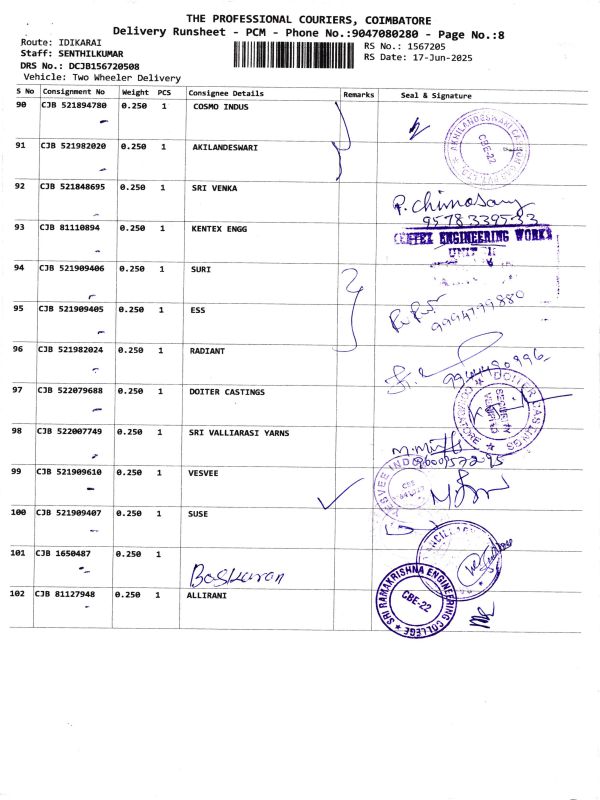 THE PROFESSIONAL COURIERS, COIMBATORE
Delivery Runsheet - PCM - Phone No.:9047080280 - Page No.:8
Route: IDIKARAI
RS No.: 1567205
Staff: SENTHILKUMAR
RS Date: 17-Jun-2025
DRS No.: DCJB156720508
Vehicle: Two Wheeler Delivery
S No Consignment No Weight PCS Consignee Details Remarks Seal & Signature
90 CJB 521894780 0.250 1 COSMO INDUS
91 CJB 521982020 0.250 1 AKILANDESWARI
CBE-22
92 CJB 521848695 0.250 1 SRI VENKA
9578339533
93 CJB 81110894 0.250 1 KENTEX ENGG
ENGINEERING WORKS
UNIT
94 CJB 521909406 0.250 1 SURI
95 CJB 521909405 0.250 1 ESS
9994799880
96 CJB 521982024 0.250 1 RADIANT
97 CJB 522079688 0.250 1 DOITER CASTINGS
DOITER CASTINGS
SECURITY
98 CJB 522007749 0.250 1 SRI VALLIARASI YARNS
99 CJB 521909610 0.250 1 VESVEE
YESVEE
100 CJB 521909407 0.250 1 SUSE
101 CJB 1650487 0.250 1
Baskaran
102 CJB 81127948 0.250 1 ALLIRANI
SRI RAMAKRISHNA ENGINEERING COLLEGE
CBE-22